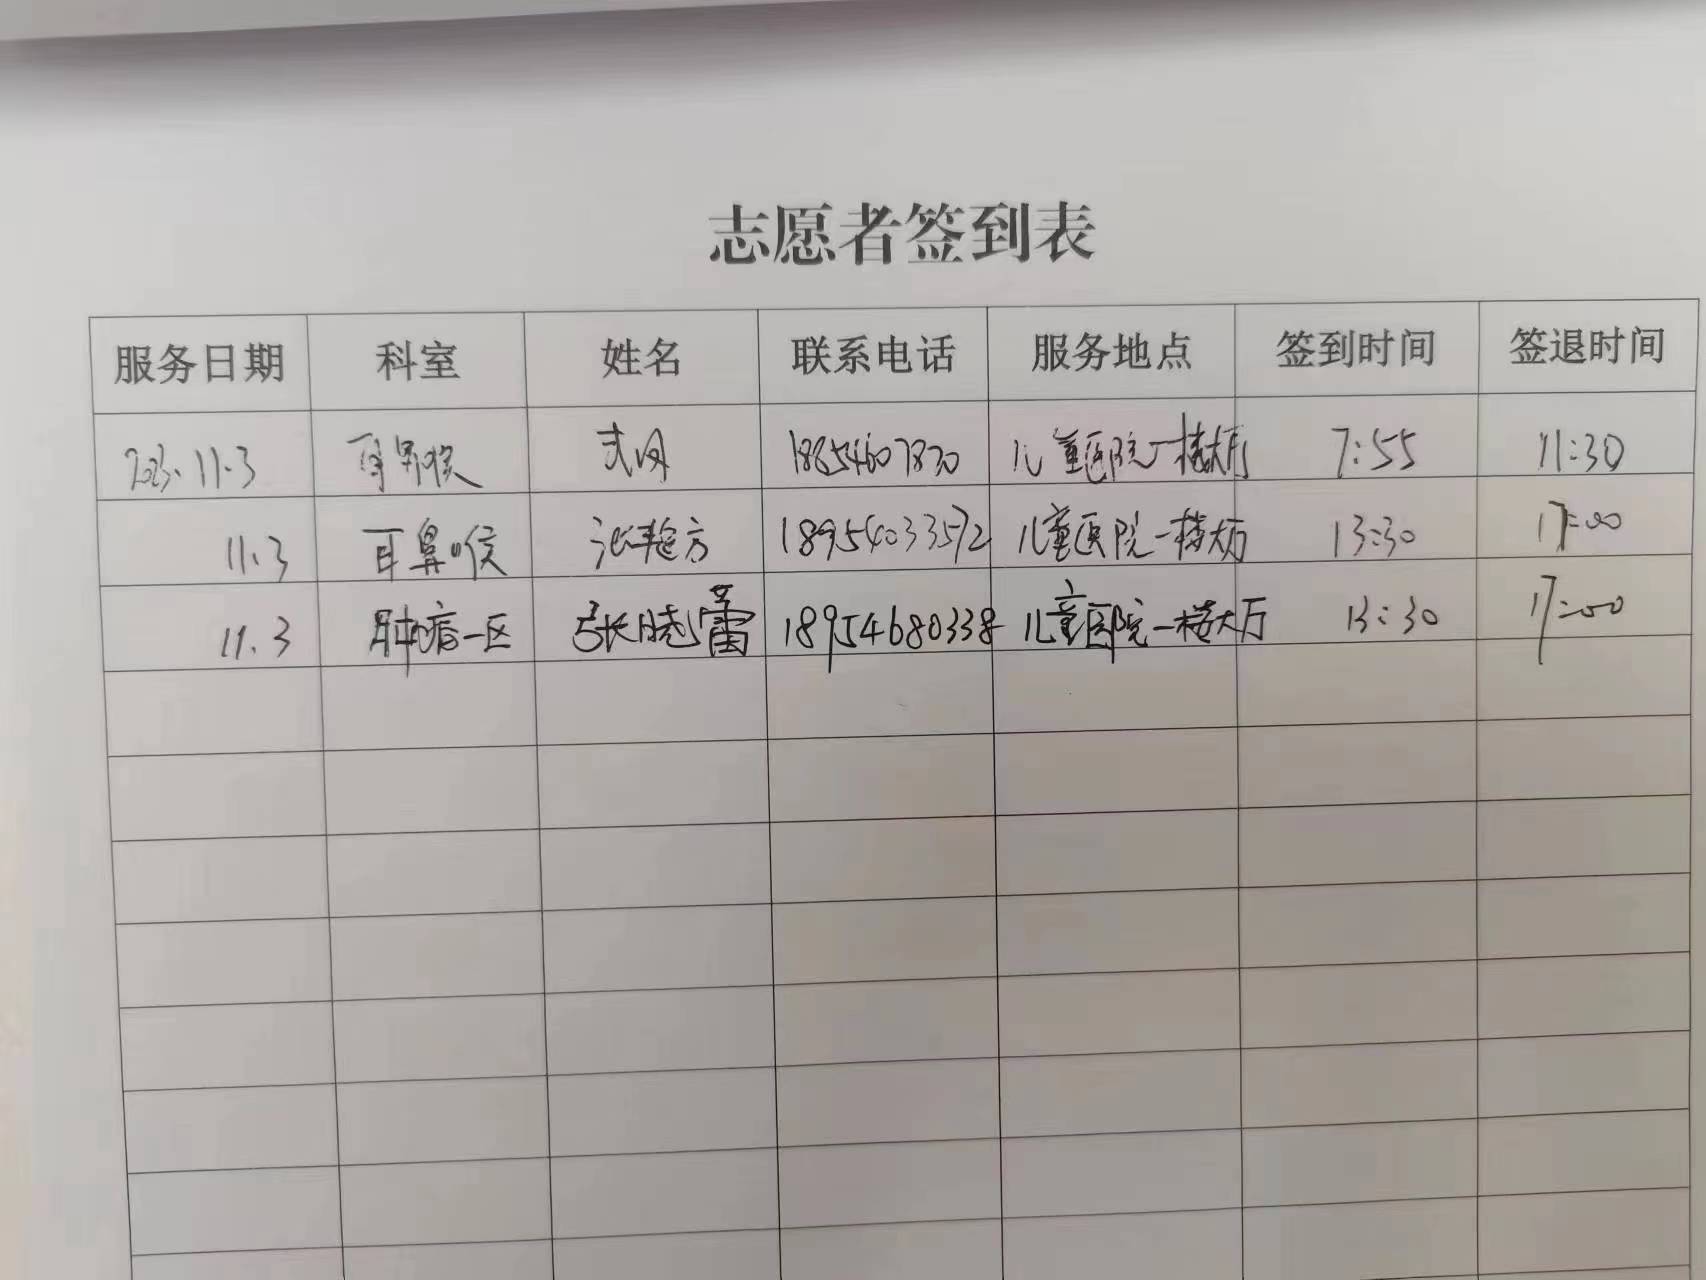 志愿者签到表
服务日期 科室 姓名 联系电话 服务地点 签到时间 签退时间
2023.11.3 耳鼻喉 18854607830 儿童医院一楼大厅 7:55 11:30
11.3 耳鼻喉 18954033572 儿童医院一楼大厅 13:30 17:00
11.3 肿瘤一区 张晓蕾 18954680338 儿童医院一楼大厅 13:30 17:00